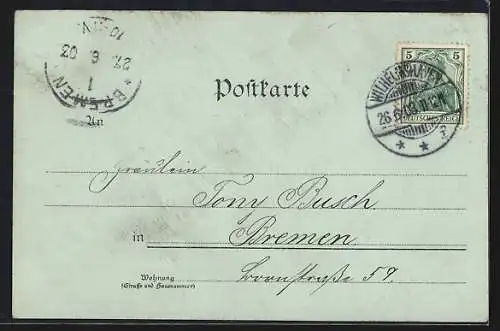 BREMEN
1
27. 6. 03
10-11 V.
Postkarte
5 5
DEUTSCHES REICH
WILHELMSHAVEN
26.6.03.
An
Fräulein
Tony Busch.
in Bremen.
Wohnung
(Straße und Hausnummer)
Bornstraße 59.